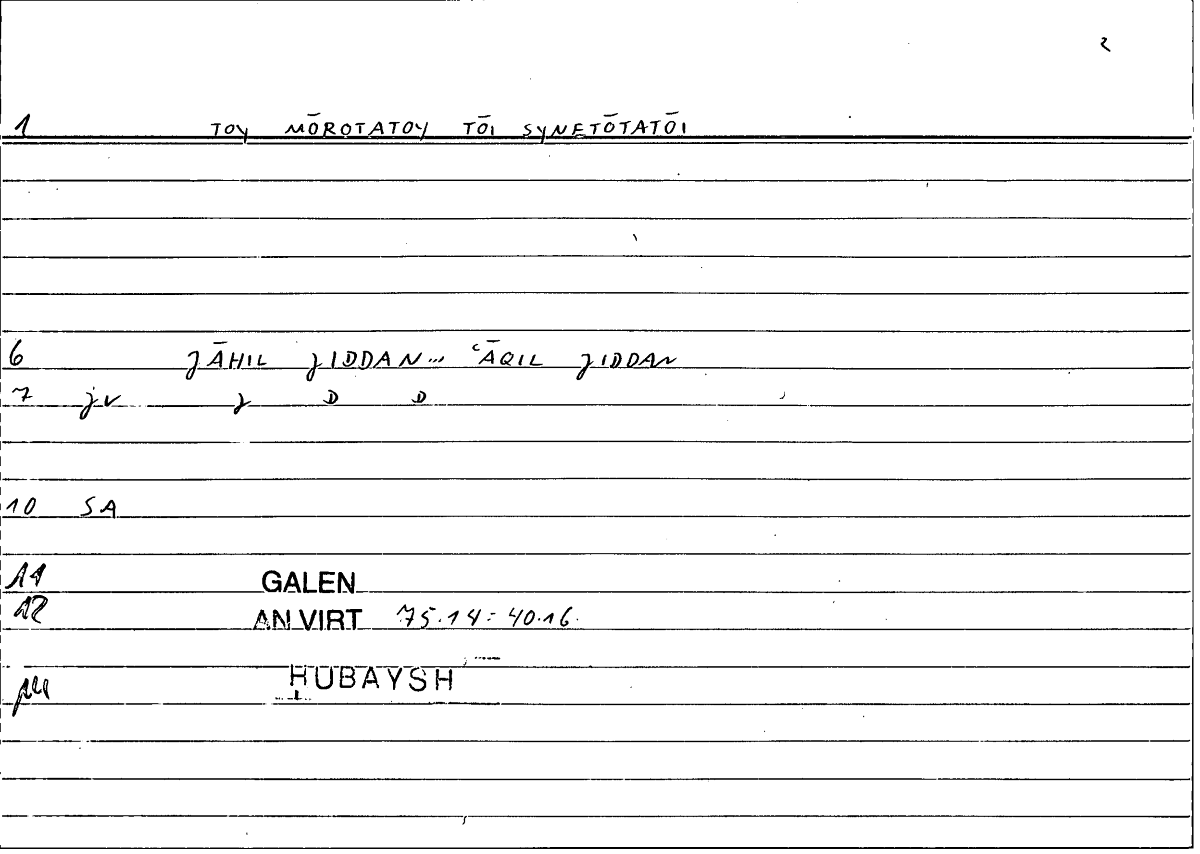 2
1 TOY MŌROTATOY TŌI SYNETŌTATŌI
6 JĀHIL JIDDAN... ʿĀQIL JIDDAN
7 jv J D D
10 SA
11 GALEN
12 AN VIRT 75.14 = 40.16.
14 HUBAYSH